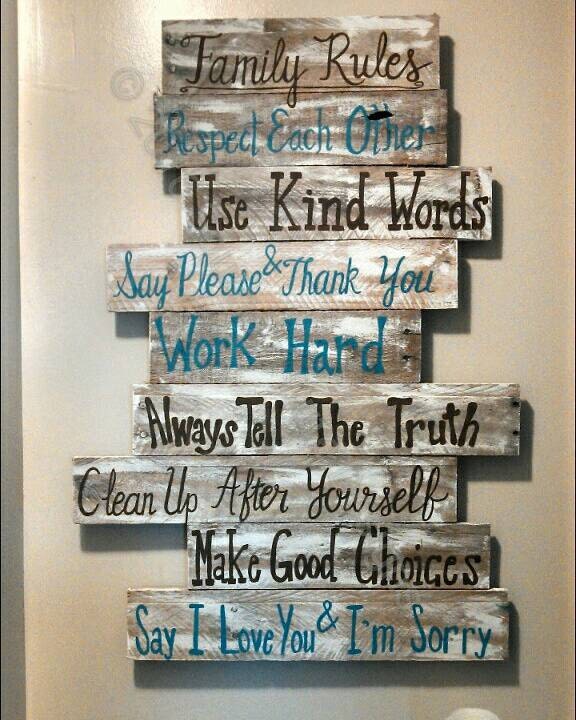 Family Rules
Respect Each Other
Use Kind Words
Say Please & Thank You
Work Hard
Always Tell The Truth
Clean Up After Yourself
Make Good Choices
Say I Love You & I'm Sorry